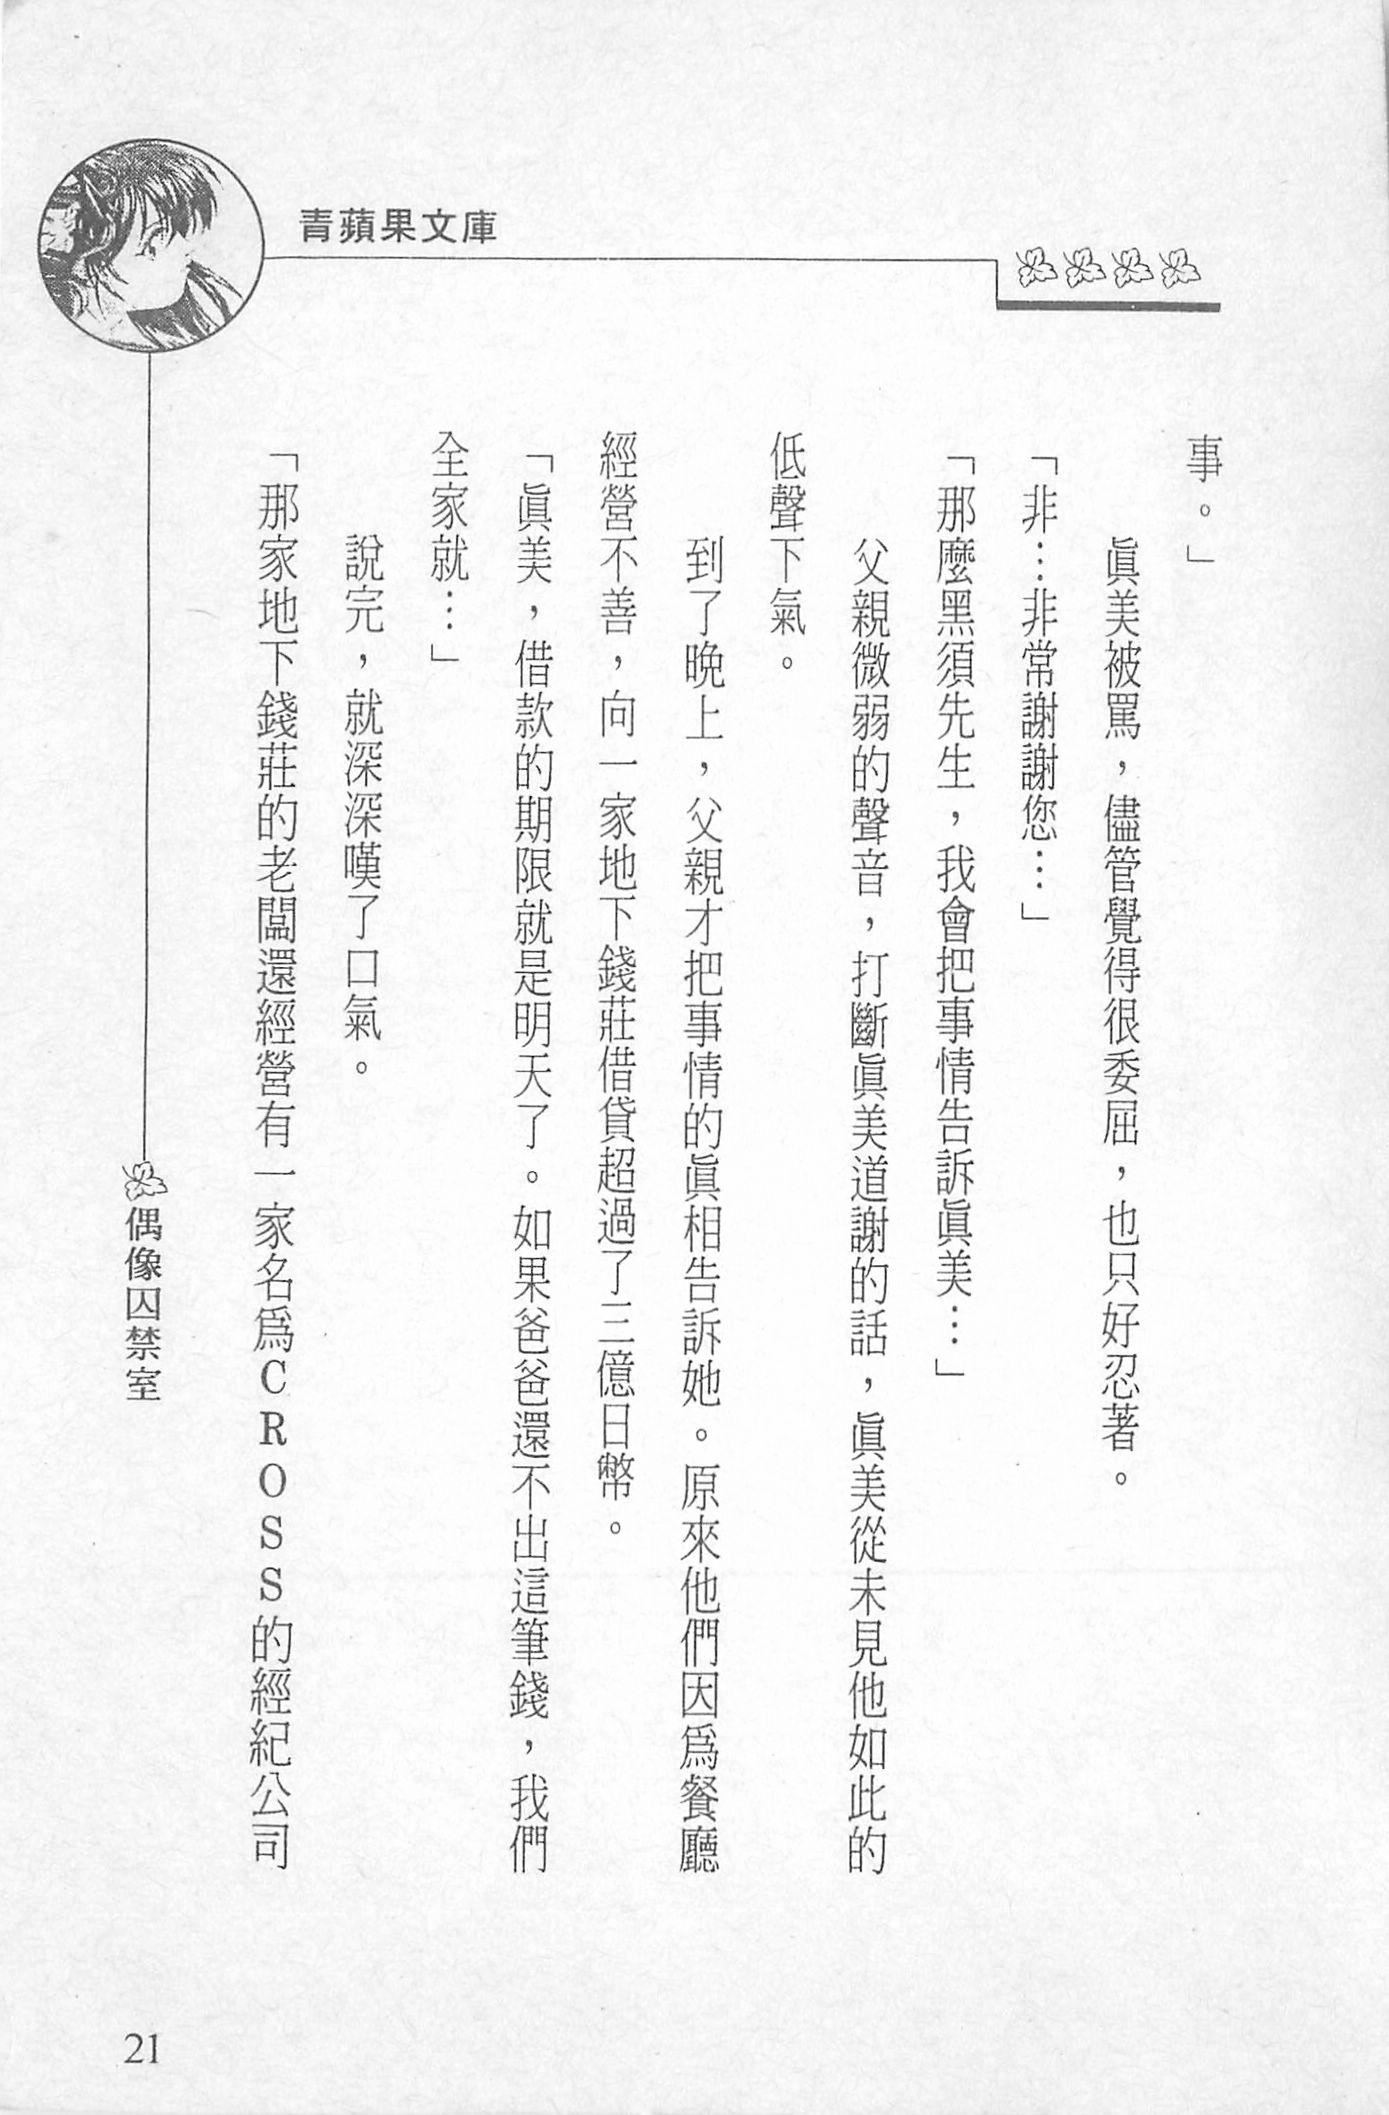 青蘋果文庫
事。」
眞美被罵，儘管覺得很委屈，也只好忍著。
「非…非常謝謝您…」
「那麼黑須先生，我會把事情告訴眞美…」
父親微弱的聲音，打斷眞美道謝的話，眞美從未見他如此的
低聲下氣。
到了晚上，父親才把事情的眞相告訴她。原來他們因爲餐廳
經營不善，向一家地下錢莊借貸超過了三億日幣。
「眞美，借款的期限就是明天了。如果爸爸還不出這筆錢，我們
全家就…」
說完，就深深嘆了口氣。
「那家地下錢莊的老闆還經營有一家名爲CROSS的經紀公司
偶像囚禁室
21